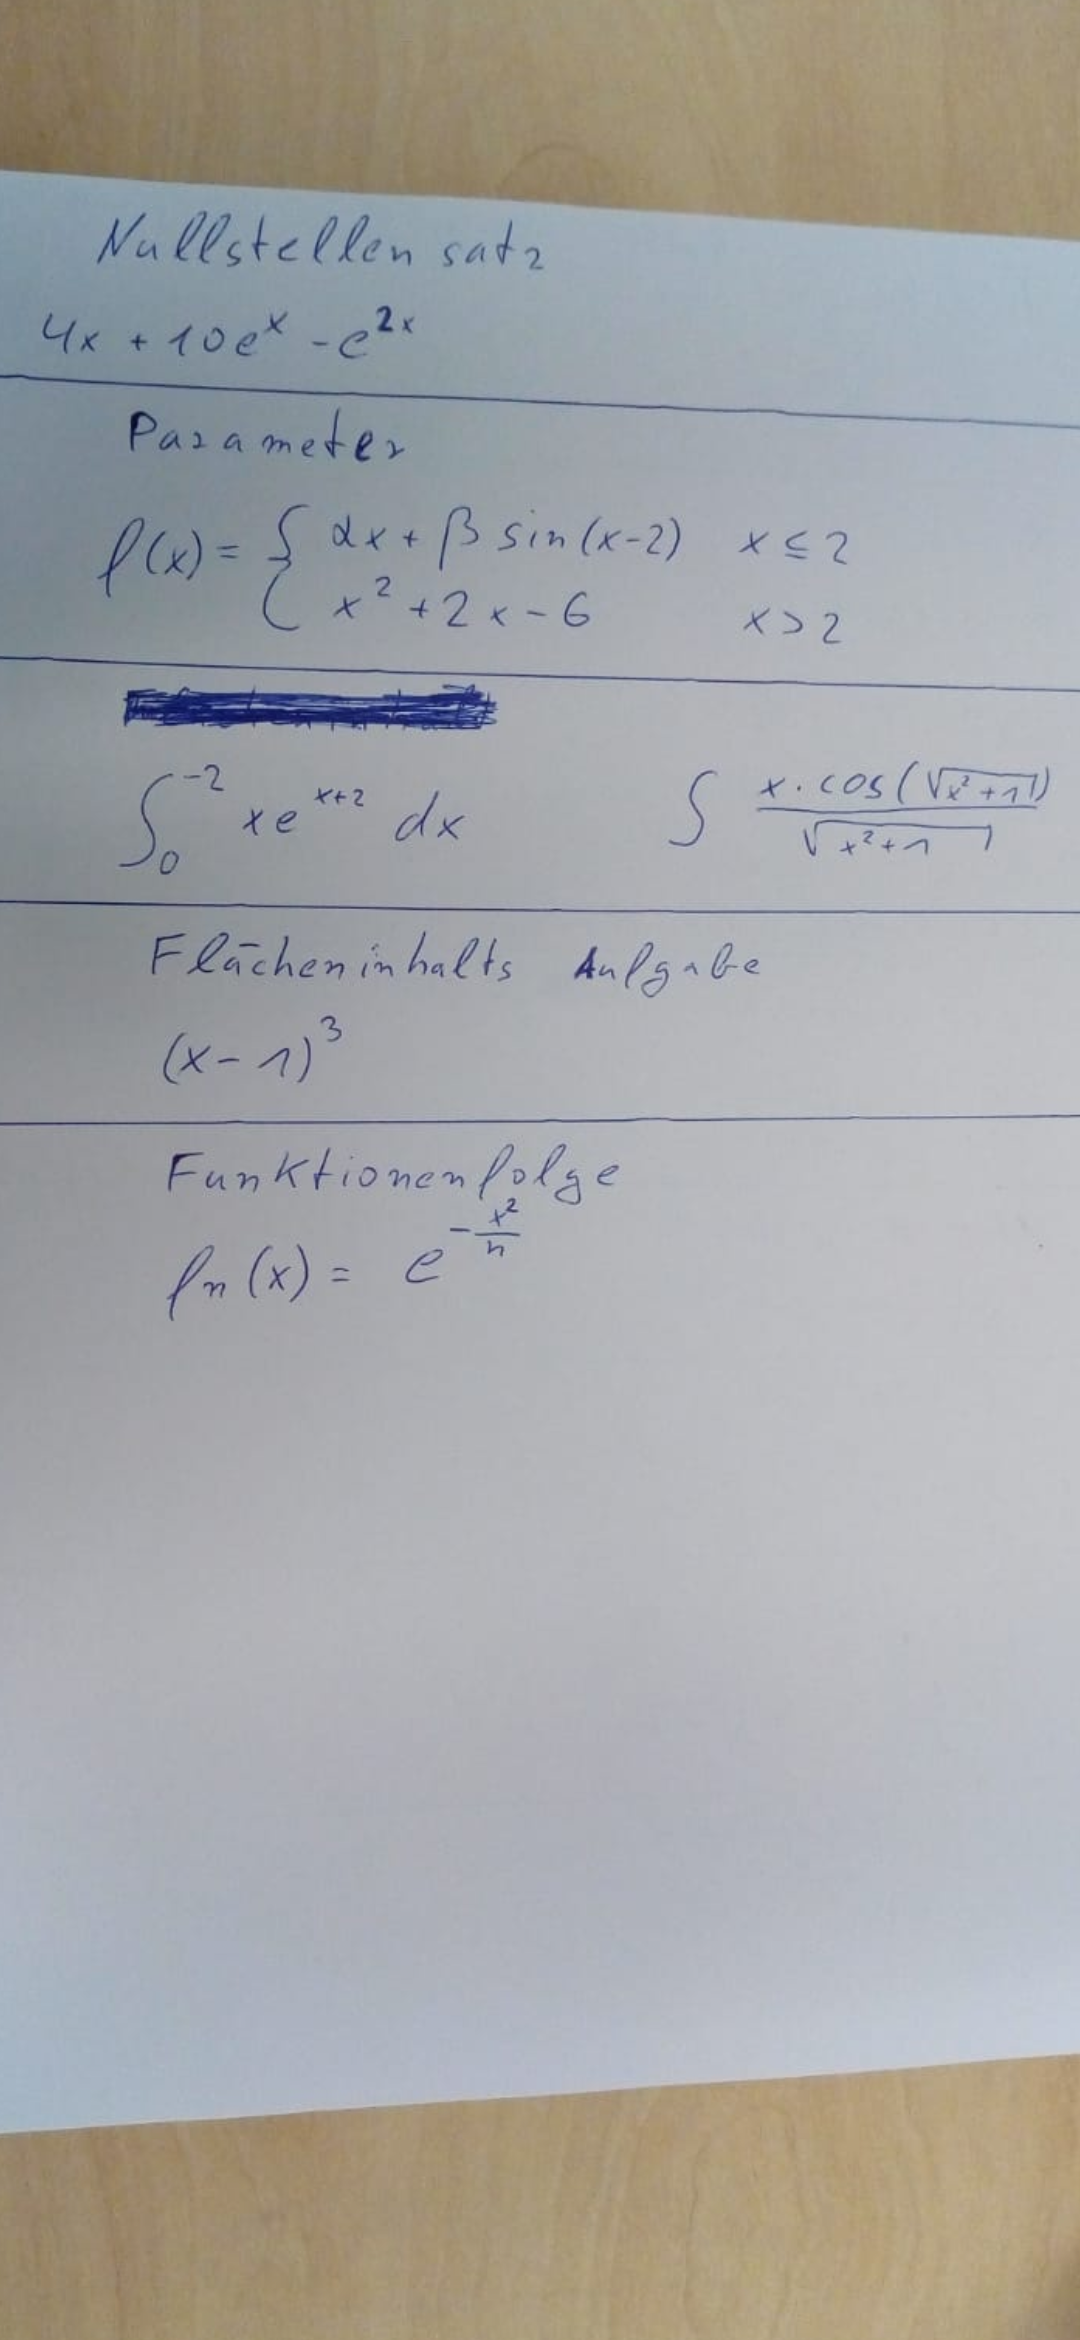 Nullstellensatz
4x + 10e^x - e^{2x}
Parameter
f(x) = { αx + β sin(x-2) x ≤ 2
x² + 2x - 6 x > 2
∫_0^{-2} xe^{x+2} dx ∫ \frac{x · cos(√(x²+1))}{√(x²+1)}
Flächeninhalts Aufgabe
(x-1)³
Funktionenfolge
fn(x) = e^{-\frac{x²}{n}}